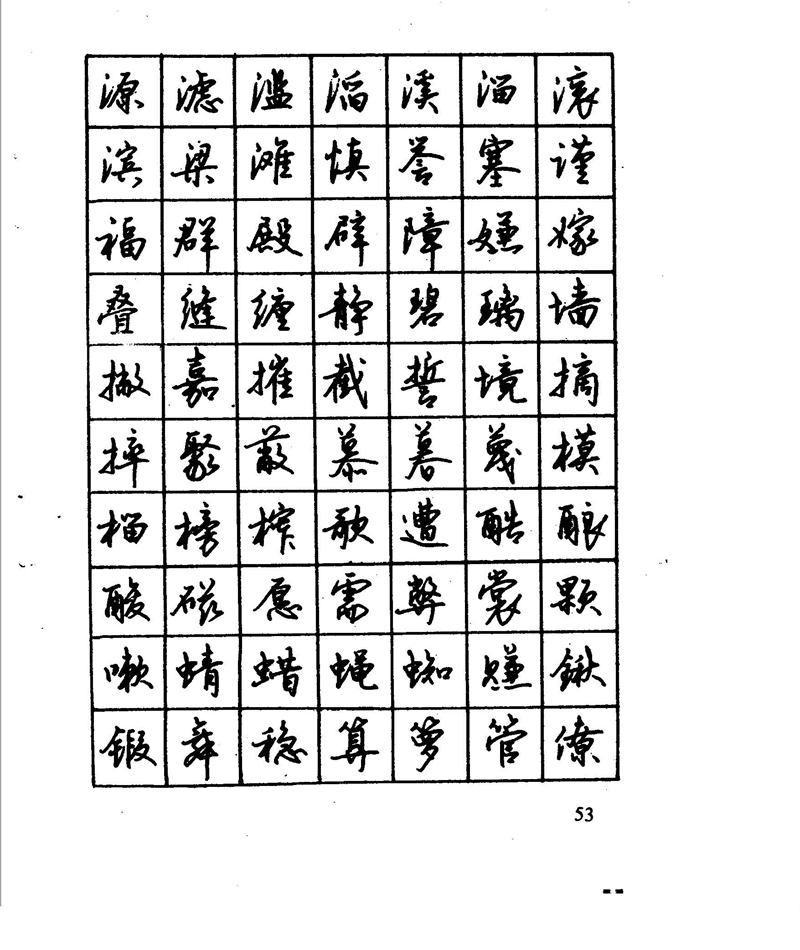 源 滤 滥 滔 溪 溜 滚
滨 粱 滩 慎 誉 塞 谨
福 群 殿 辟 障 嫌 嫁
叠 缝 缠 静 碧 璃 墙
撇 嘉 摧 截 誓 境 摘
摔 聚 蔽 慕 暮 蔑 模
榴 榜 榨 歌 遭 酷 酿
酸 磁 愿 需 弊 裳 颗
嗽 蜻 蜡 蝇 蜘 赚 锹
锻 舞 稳 算 箩 管 僚
53